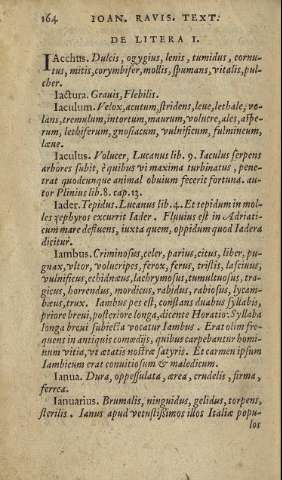 164 IOAN. RAVIS. TEXT.
DE LITERA I.
IAcchus. Dulcis, ogygius, lenis, tumidus, cornu-
tus, mitis, corymbifer, mollis, spumans, vitalis, pul-
cher.
Iactura. Grauis, Flebilis.
Iaculum. Velox, acutum, stridens, leue, lethale, vo-
lans, tremulum, intortum, maurum, volucre, ales, aspe-
rum, lethiferum, gnosiacum, vulnificum, fulmineum,
læue.
Iaculus. Volucer, Lucanus lib. 9. Iaculus serpens
arbores subit, è quibus vi maxima turbinatus, pene-
trat quodcunque animal obuium fecerit fortuna. au-
tor Plinius lib. 8. cap. 23.
Iader. Tepidus. Lucanus lib. 4. Et tepidum in mol-
les zephyros excurrit Iader. Fluuius est in Adriati-
cum mare defluens, iuxta quem, oppidum quod Iadera
dicitur.
Iambus. Criminosus, celer, parius, citus, liber, pu-
gnax, vltor, volucripes, ferox, ferus, tristis, lasciuus,
vulnificus, echidnæus, lachrymosus, tumultuosus, tra-
gicus, horrendus, mordicus, rabidus, rabiosus, lycam-
bæus, trux. Iambus pes est, constans duabus syllabis,
priore breui, posteriore longa, dicente Horatio: Syllaba
longa breui subiecta vocatur Iambus. Erat olim fre-
quens in antiquis comœdijs, quibus carpebantur homi-
num vitia, vt ætatis nostræ satyris. Et carmen ipsum
Iambicum erat conuitiosum & maledicum.
Ianua. Dura, oppessulata, ærea, crudelis, firma,
ferrea.
Ianuarius. Brumalis, ninguidus, gelidus, torpens,
sterilis. Ianus apud vetustissimos illos Italiæ popu-
los